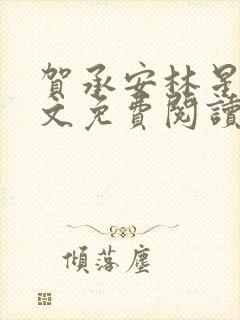 賀承安林星
文免費閱讀
傾落塵